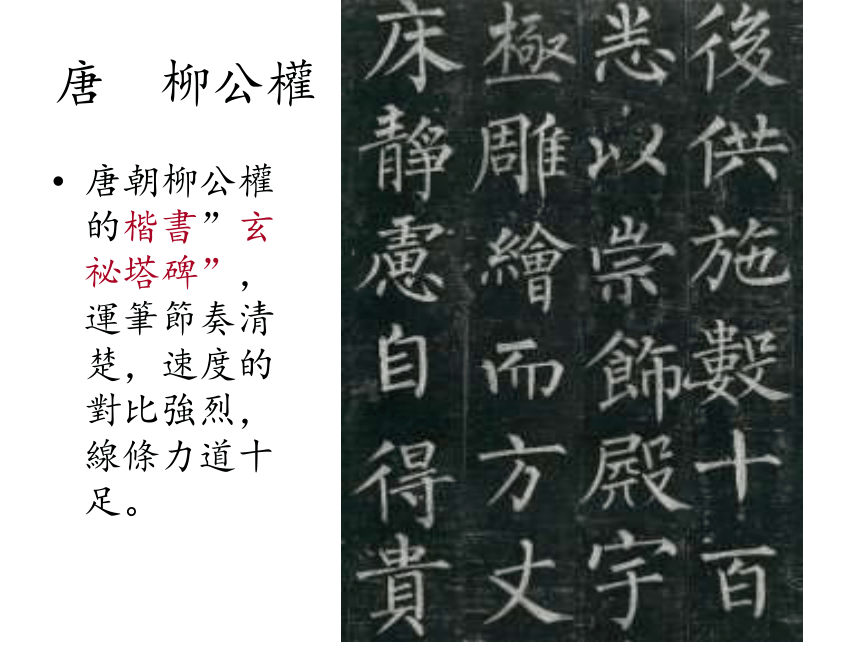 唐　柳公權
• 唐朝柳公權
的楷書”玄
祕塔碑”，
運筆節奏清
楚，速度的
對比強烈，
線條力道十
足。
後供施數十百
悉以崇飾殿宇
極雕繪而方丈
床靜慮自得貴